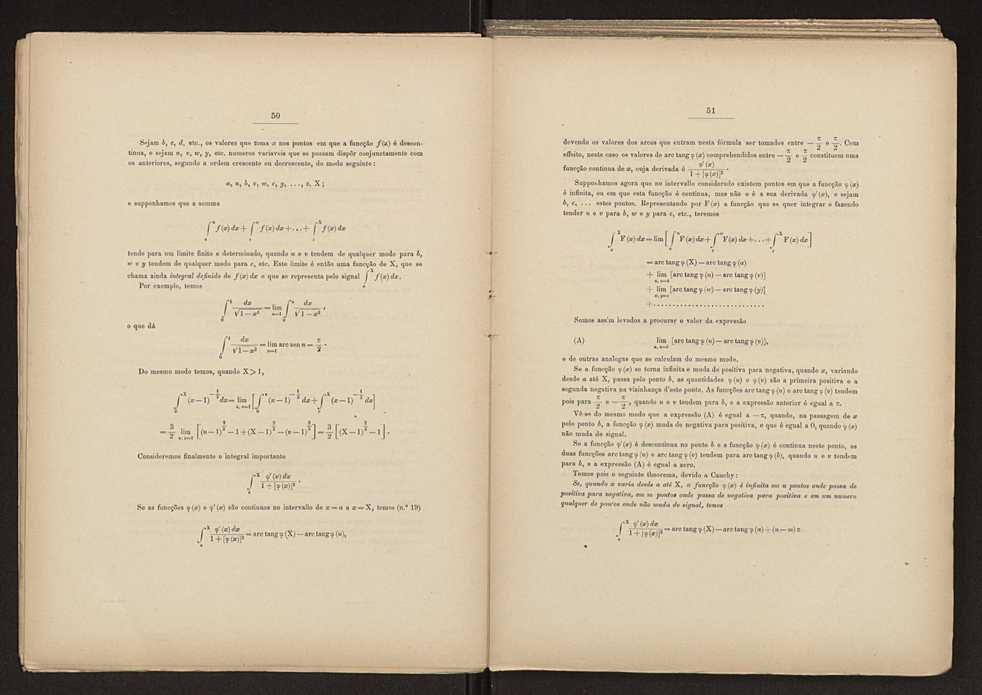 50
Sejam b, c, d, etc., os valores que toma x nos pontos em que a funcção f(x) é descon-
tinua, e sejam u, v, w, y, etc. numeros variaveis que se possam dispôr conjunctamente com
os anteriores, segundo a ordem crescente ou decrescente, do modo seguinte:
a, u, b, v, w, c, y, ..., z, X;
e supponhamos que a somma
∫ f(x) dx + ∫ f(x) dx + ... + ∫ f(x) dx
tende para um limite finito e determinado, quando u e v tendem de qualquer modo para b,
w e y tendem de qualquer modo para c, etc. Este limite é então uma funcção de X, que se
chama ainda integral definido de f(x) dx e que se representa pelo signal ∫ₐ^X f(x) dx.
Por exemplo, temos
∫₀¹ dx/√(1−x²) = lim_{u=1} ∫₀^u dx/√(1−x²),
o que dá
∫₀¹ dx/√(1−x²) = lim_{u=1} arc sen u = π/2.
Do mesmo modo temos, quando X > 1,
∫₀^X (x−1)^{−1/3} dx = lim_{u, v=1} [∫₀^u (x−1)^{−1/3} dx + ∫_v^X (x−1)^{−1/3} dx]
= 3/2 lim_{u, v=1} [(u−1)^{2/3} − 1 + (X−1)^{2/3} − (v−1)^{2/3}] = 3/2 [(X−1)^{2/3} − 1].
Consideremos finalmente o integral importante
∫ₐ^X φ'(x) dx / 1+[φ(x)]².
Se as funcções φ(x) e φ'(x) são continuas no intervallo de x = a a x = X, temos (n.º 19)
∫ₐ^X φ'(x) dx / 1+[φ(x)]² = arc tang φ(X) — arc tang φ(a),
51
devendo os valores dos arcos que entram nesta fórmula ser tomados entre — π/2 e π/2. Com
effeito, neste caso os valores de arc tang φ(x) comprehendidos entre — π/2 e π/2 constituem uma
funcção continua de x, cuja derivada é φ'(x) / 1+[φ(x)]².
Supponhamos agora que no intervallo considerado existem pontos em que a funcção φ(x)
é infinita, ou em que esta funcção é continua, mas não o é a sua derivada φ'(x), e sejam
b, c, ... estes pontos. Representando por F(x) a funcção que se quer integrar e fazendo
tender u e v para b, w e y para c, etc., teremos
∫ₐ^X F(x) dx = lim [∫ₐ^u F(x) dx + ∫_v^w F(x) dx + ... + ∫ F(x) dx]
= arc tang φ(X) — arc tang φ(a)
+ lim_{u, v=b} [arc tang φ(u) — arc tang φ(v)]
+ lim_{w, y=c} [arc tang φ(w) — arc tang φ(y)]
+ . . . . . . . . . . . . . . . . . . . . . . . . . . .
Somos assim levados a procurar o valor da expressão
(A) lim_{u, v=b} [arc tang φ(u) — arc tang φ(v)],
e de outras analogas que se calculam do mesmo modo.
Se a funcção φ(x) se torna infinita e muda de positiva para negativa, quando x, variando
desde a até X, passa pelo ponto b, as quantidades φ(u) e φ(v) são a primeira positiva e a
segunda negativa na vizinhança d'este ponto. As funcções arc tang φ(u) e arc tang φ(v) tendem
pois para π/2 e — π/2, quando u e v tendem para b, e a expressão anterior é egual a π.
Vê-se do mesmo modo que a expressão (A) é egual a — π, quando, na passagem de x
pelo ponto b, a funcção φ(x) muda de negativa para positiva, e que é egual a 0, quando φ(x)
não muda de signal.
Se a funcção φ'(x) é descontinua no ponto b e a funcção φ(x) é continua neste ponto, as
duas funcções arc tang φ(u) e arc tang φ(v) tendem para arc tang φ(b), quando u e v tendem
para b, e a expressão (A) é egual a zero.
Temos pois o seguinte theorema, devido a Cauchy:
Se, quando x varia desde a até X, a funcção φ(x) é infinita em n pontos onde passa de
positiva para negativa, em m pontos onde passa de negativa para positiva e em um numero
qualquer de pontos onde não muda de signal, temos
∫ₐ^X φ'(x) dx / 1+[φ(x)]² = arc tang φ(X) — arc tang φ(a) + (n — m) π.